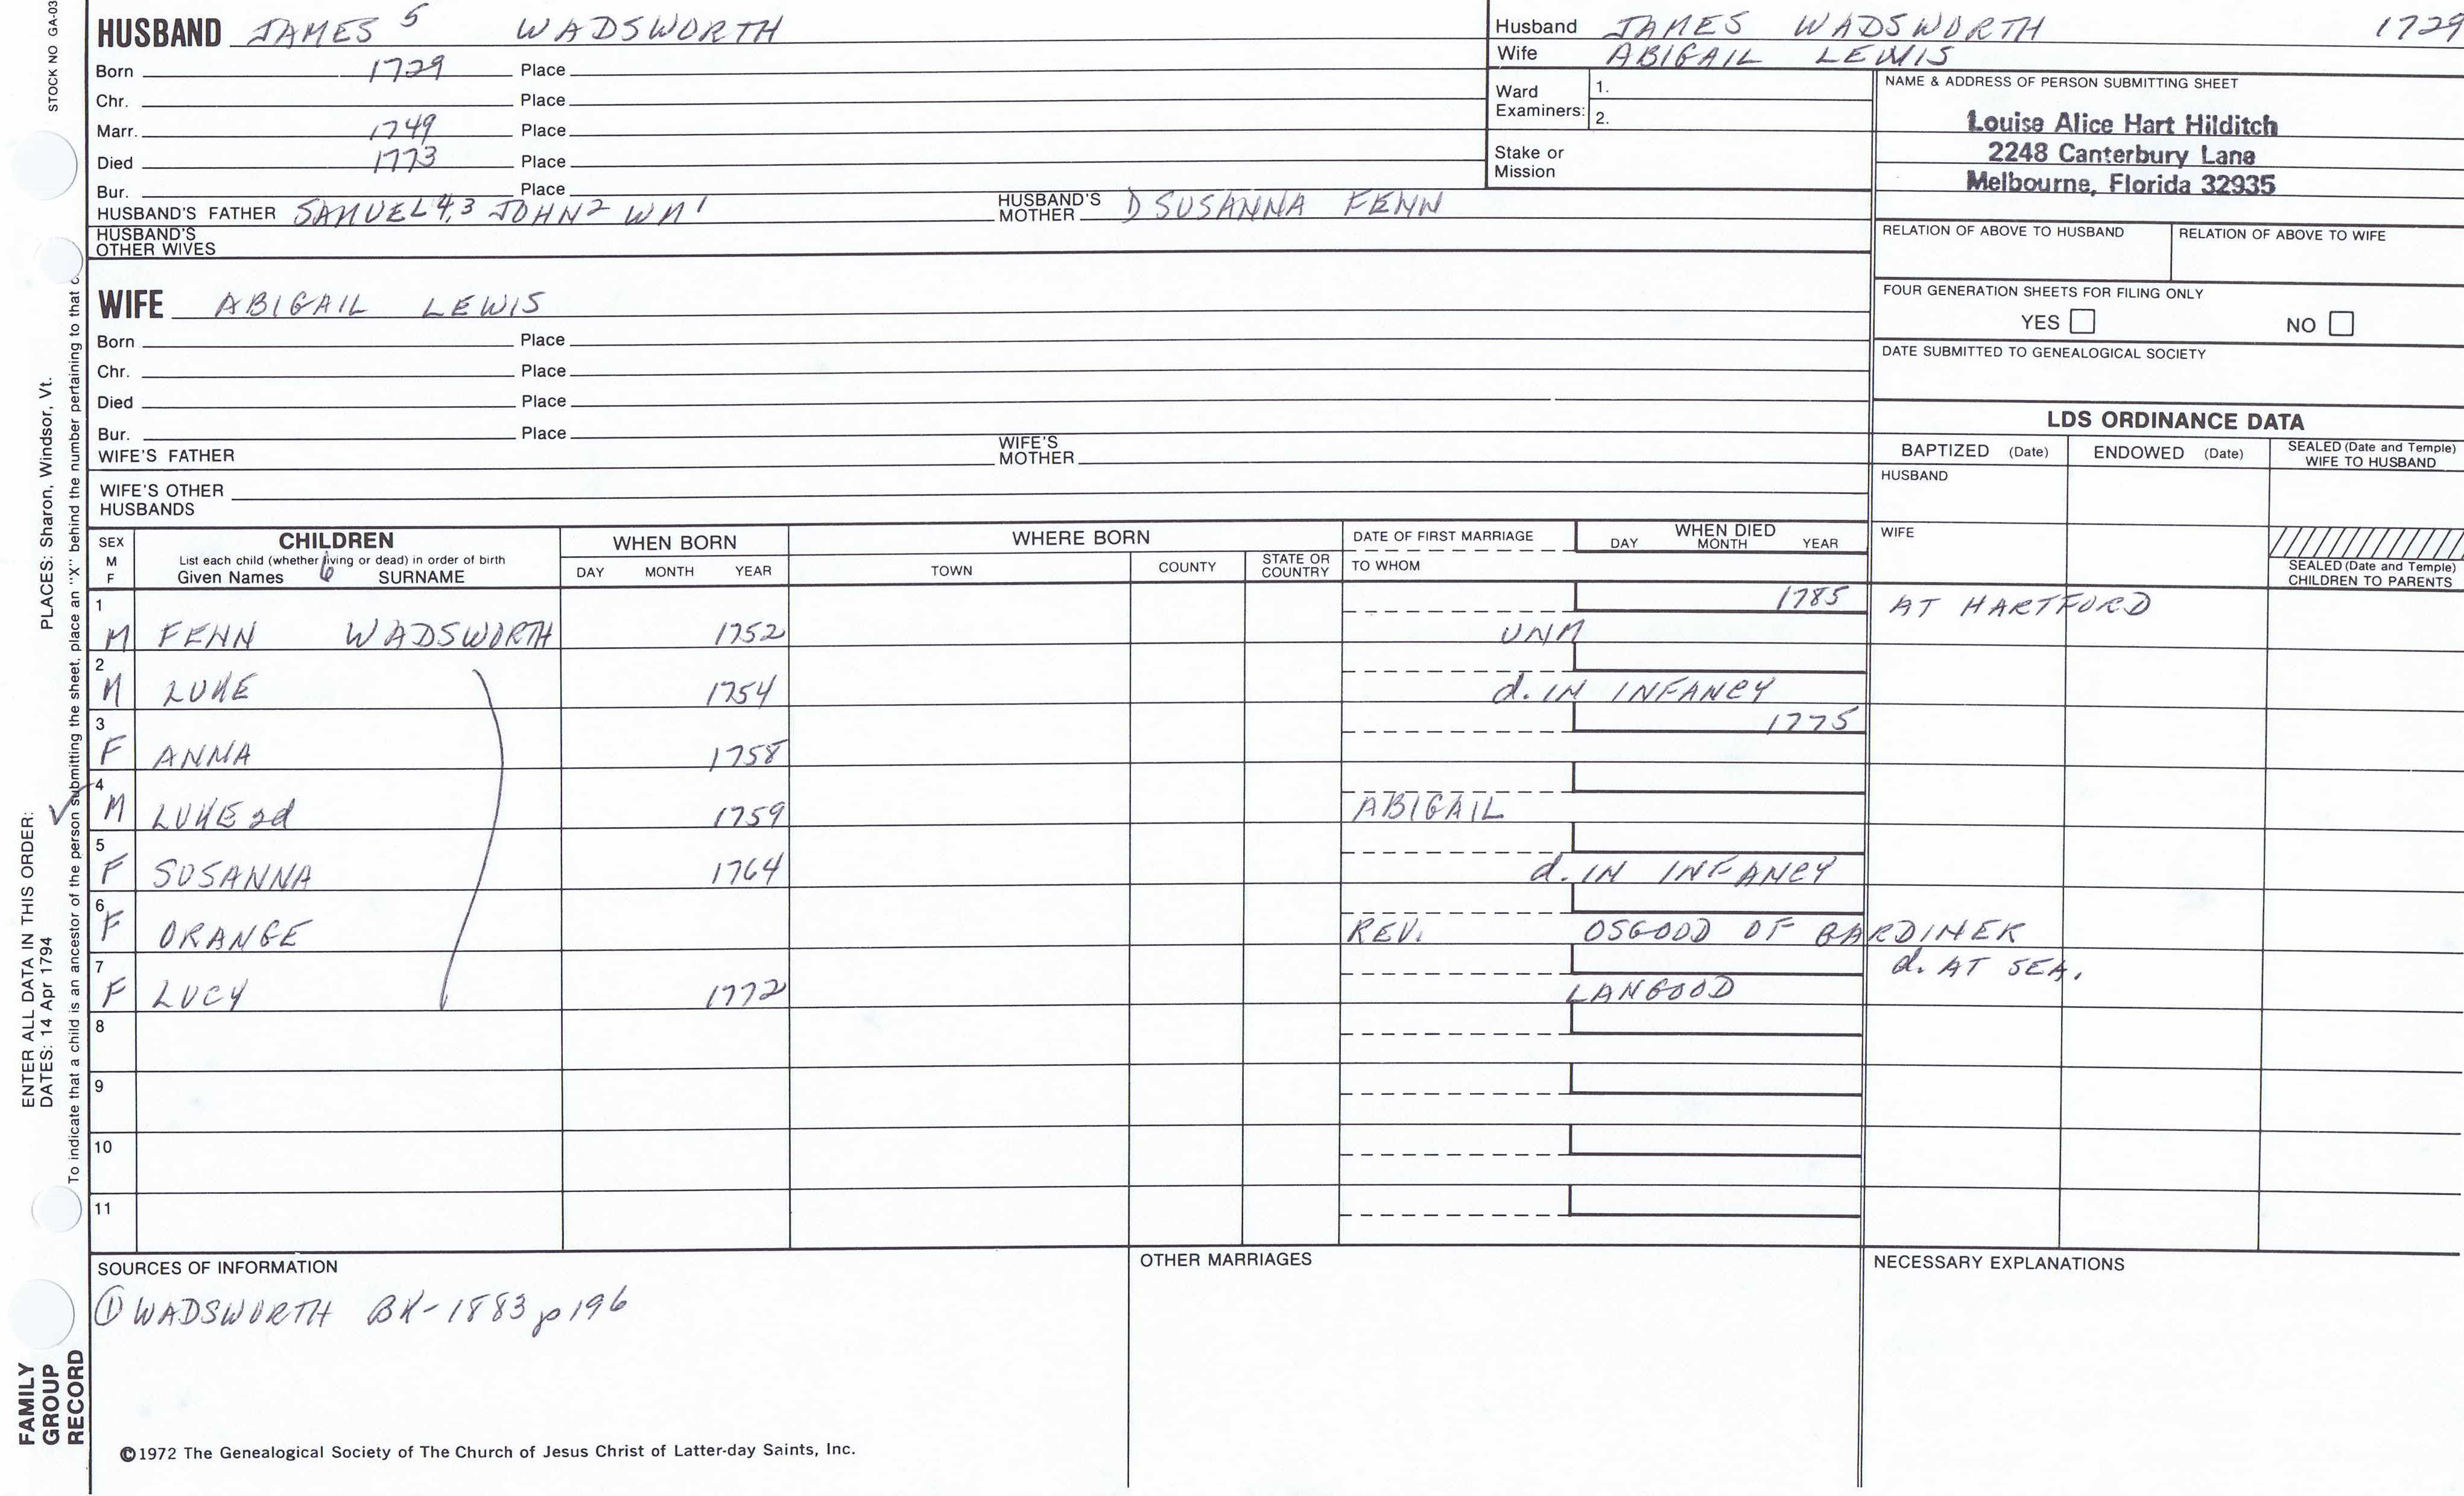 STOCK NO GA-03
HUSBAND JAMES 5 WADSWORTH
Born 1729 Place
Chr. Place
Marr. 1749 Place
Died 1773 Place
Bur. Place
HUSBAND'S FATHER SAMUEL 4,3 JOHN 2 WM 1 HUSBAND'S MOTHER D SUSANNA FENN
HUSBAND'S OTHER WIVES
Husband JAMES WADSWORTH 1729
Wife ABIGAIL LEWIS
Ward Examiners: 1.
2.
Stake or Mission
NAME & ADDRESS OF PERSON SUBMITTING SHEET
Louise Alice Hart Hilditch
2248 Canterbury Lane
Melbourne, Florida 32935
RELATION OF ABOVE TO HUSBAND RELATION OF ABOVE TO WIFE
FOUR GENERATION SHEETS FOR FILING ONLY
YES NO
DATE SUBMITTED TO GENEALOGICAL SOCIETY
WIFE ABIGAIL LEWIS
Born Place
Chr. Place
Died Place
Bur. Place
WIFE'S FATHER WIFE'S MOTHER
WIFE'S OTHER HUSBANDS
LDS ORDINANCE DATA
BAPTIZED (Date) ENDOWED (Date) SEALED (Date and Temple) WIFE TO HUSBAND
HUSBAND
WIFE
SEALED (Date and Temple) CHILDREN TO PARENTS
SEX M F
CHILDREN
List each child (whether living or dead) in order of birth
Given Names 6 SURNAME
WHEN BORN
DAY MONTH YEAR
WHERE BORN
TOWN COUNTY STATE OR COUNTRY
DATE OF FIRST MARRIAGE
TO WHOM
WHEN DIED
DAY MONTH YEAR
1 1785 AT HARTFORD
M FENN WADSWORTH 1752 UNM
2
M LUKE 1754 d. IN INFANCY
3 1775
F ANNA 1758
4
M LUKE 2d 1759 ABIGAIL
5
F SUSANNA 1764 d. IN INFANCY
6
F ORANGE REV. OSGOOD OF GARDINER
7 d. AT SEA.
F LUCY 1772 LANGOOD
8
9
10
11
SOURCES OF INFORMATION
① WADSWORTH BK-1883 p196
OTHER MARRIAGES
NECESSARY EXPLANATIONS
©1972 The Genealogical Society of The Church of Jesus Christ of Latter-day Saints, Inc.
FAMILY GROUP RECORD
ENTER ALL DATA IN THIS ORDER:
DATES: 14 Apr 1794 PLACES: Sharon, Windsor, Vt.
To indicate that a child is an ancestor of the person submitting the sheet, place an "X" behind the number pertaining to that c